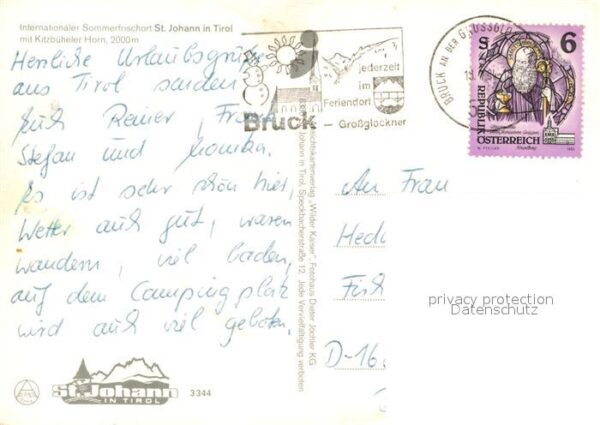 Internationaler Sommerfrischort St. Johann in Tirol
mit Kitzbüheler Horn, 2000m
Herzliche Urlaubsgrüße
aus Tirol senden
Euch Reiner,
Stefan und Monika.
Es ist sehr schön hier,
Wetter auch gut, waren
wandern, viel baden,
auf dem Campingplatz
wird auch viel geboten.
St. Johann
IN TIROL
3344
jederzeit
im
Feriendorf
Bruck
- Großglockner
BRUCK AN DER GROSSGL
S 6
REPUBLIK
ÖSTERREICH
chtskartenverlag „Wilder Kaiser", Fotohaus Dieter Jöchler KG
Johann in Tirol, Speckbacherstraße 12. Jede Vervielfältigung verboten
An Frau
Hed
Fisch
D-16
privacy protection
Datenschutz